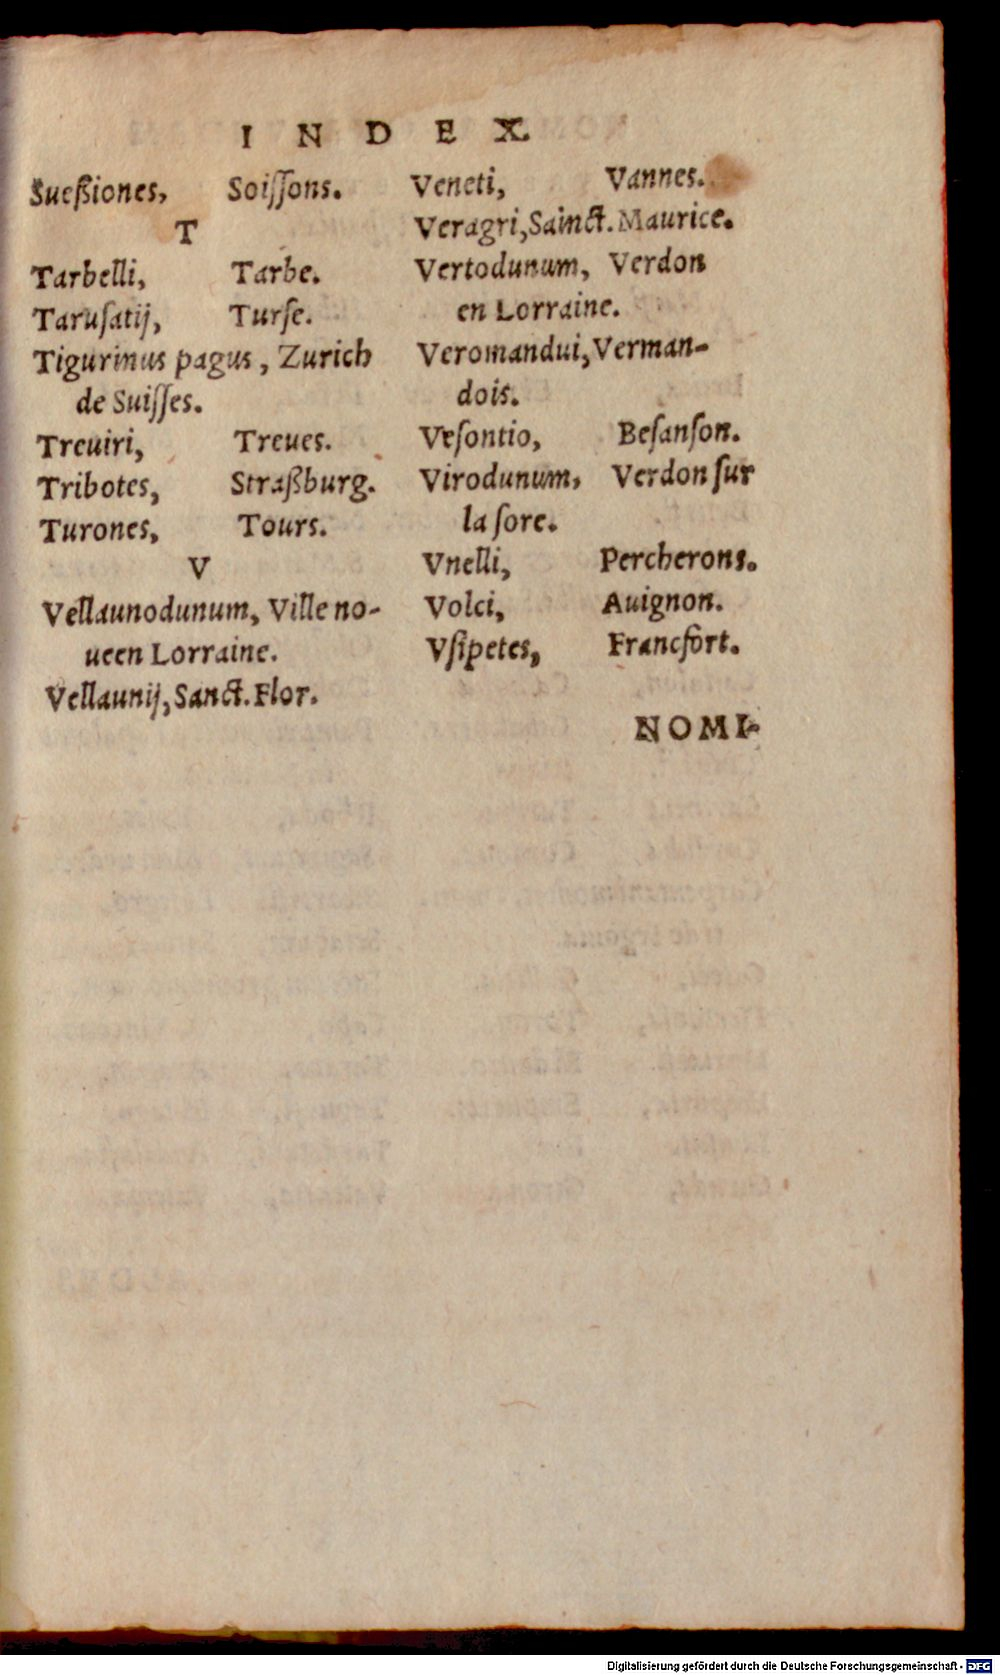 INDEX.
Sueßiones, Soiſſons.
T
Tarbelli, Tarbe.
Taruſatij, Turſe.
Tigurinus pagus, Zurich
de Suiſſes.
Treuiri, Treues.
Tribotes, Straßburg.
Turones, Tours.
V
Vellaunodunum, Ville no-
ueen Lorraine.
Vellaunij, Sanct. Flor.
Veneti, Vannes.
Veragri, Sainct. Maurice.
Vertodunum, Verdon
en Lorraine.
Veromandui, Verman-
dois.
Veſontio, Beſanſon.
Virodunum, Verdon ſur
la ſore.
Vnelli, Percherons.
Volci, Auignon.
Vſipetes, Francfort.
NOMI-
Digitalisierung gefördert durch die Deutsche Forschungsgemeinschaft - DFG